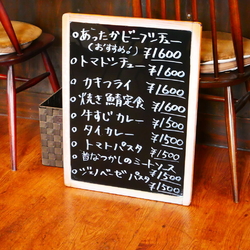 ○あったかビーフシチュー
(おすすめ♪) ¥1600
○トマトシチュー ¥1600
○カキフライ ¥1600
○焼き鯖定食 ¥1600
○牛すじカレー ¥1500
○タイカレー ¥1500
○トマトパスタ ¥1500
○昔なつかしのミートソース ¥1500
○ジェノベーゼパスタ ¥1500